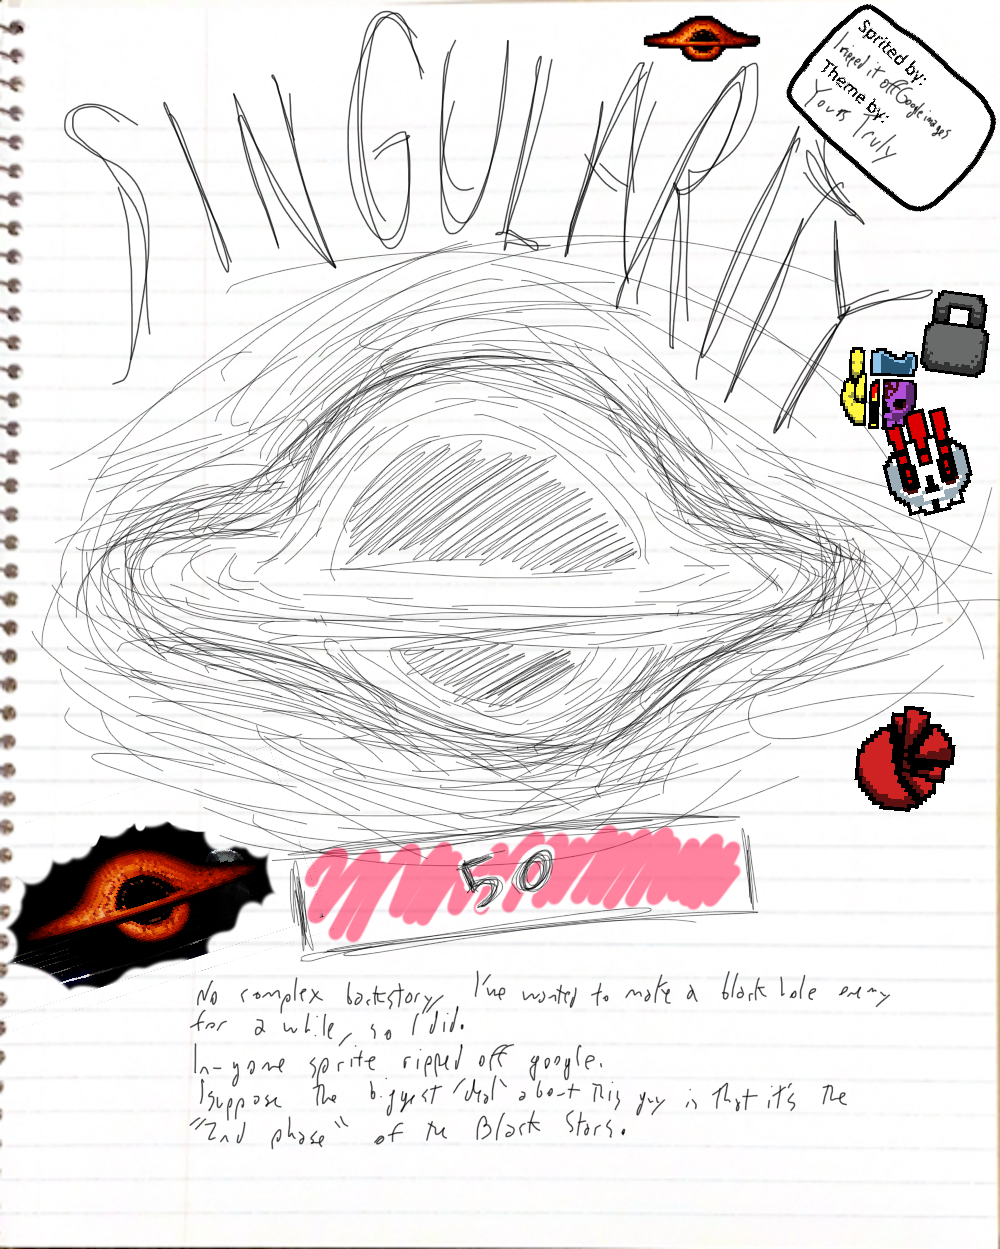 SINGULARITY
Sprited by:
I ripped it off Google images
Theme by:
Yours Truly
50
No complex backstory, I've wanted to make a black hole enemy
for a while, so I did.
In-game sprite ripped off google.
I suppose the biggest "deal" about this guy is that it's the
"2nd phase" of the Black Stars.